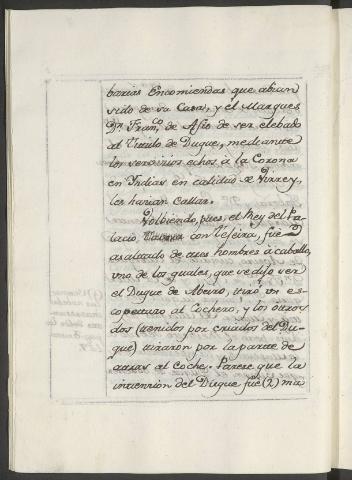 barias Encomiendas que abian
sido de su Casa, y el Marques
Dn. Franco. de Asis de ser elebado
al Titulo de Duque, mediante
los servicios echos à la Corona
en Indias en calidad de Virrey,
les harian callar.
Volbiendo, pues, el Rey del Pa-
lacio con Teseira, fue
asaltado de tres hombres à caballo,
uno de los quales, que se dijo ser
el Duque de Abeiro, tirò un es-
copetazo al Cochero, y los otros
dos (tenidos por criados del Du-
que) tiraron por la parte de
atras al coche. Parece que la
intencion del Duque fue (2) ma